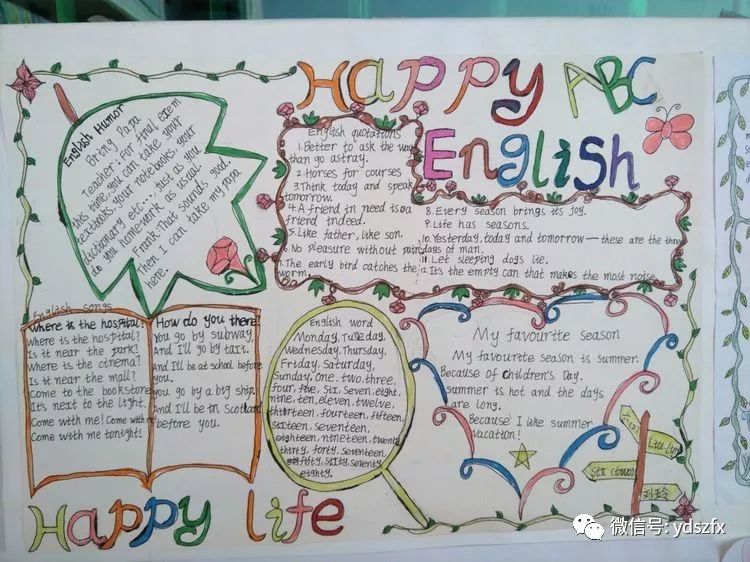 Happy ABC
English
English Humor
Bring Papa
Teacher: For final Exem
this time, you can take your
textbooks your notebooks, your
dictionary etc... just as you
do you homework as usual.
Frank: That sounds good.
Then I can take my papa
here.
English quotations
1. Better to ask the way
than go astray.
2. Horses for courses
3. Think today and speak
tomorrow.
4. A friend in need is a
friend indeed.
5. Like father, like son.
6. No pleasure without pain
7. The early bird catches the
worm.
8. Every season brings its joy.
9. Life has seasons.
10. Yesterday, today and tomorrow — these are the three
days of man.
11. Let sleeping dogs lie.
12. It's the empty can that makes the most noise.
English songs
Where is the hospital?
Where is the hospital?
Is it near the park?
Where is the cinema?
Is it near the mall?
Come to the bookstore
It's next to the light.
Come with me! Come with me
Come with me tonight!
How do you there?
You go by subway.
And I'll go by taxi.
And I'll be at school before
you.
You go by a big ship.
And I'll be in Scotland
before you.
English word
Monday, Tuseday,
Wednesday, Thursday,
Friday, Saturday,
Sunday, one, two, three,
four, five, six, seven, eight,
nine, ten, eleven, twelve,
thirteen, fourteen, fifteen
sixteen, seventeen,
eighteen, nineteen, twenty
thirty, forty, seventeen,
fifty, sixty, seventy
eighty.
My favourite season
My favourite season is summer.
Because of Children's Day.
summer is hot and the days
are long.
Because I like summer
vacation!
Liu Ling
six (two)
刘玲
Happy life
微信号: ydszfx